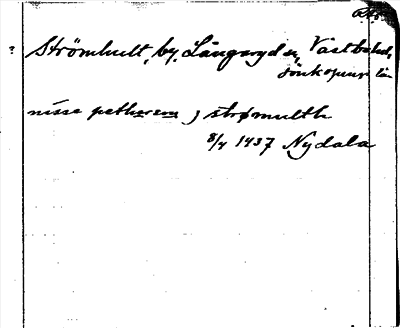 ? Strömhult, by, Långaryd sn, Västbo hd,
Jönköpings län
nisse pethersson j strømulth
8/4 1437 Nydala